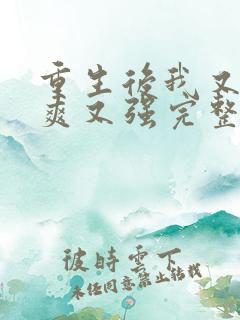 重生后我又
爽又强完整
彼时云下
未经同意禁止转载